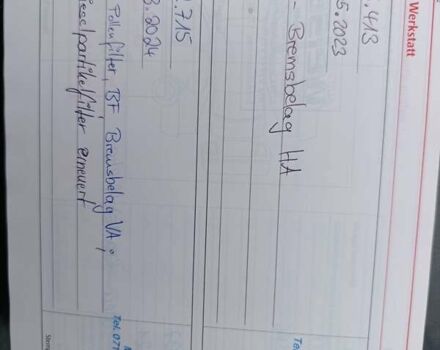 Werkstatt
.413
5.2023
- Bremsbelag HA
.715
3.2024
Pollenfilter, BF Bremsbelag VA,
partikelfilter erneuert
Tel. 071